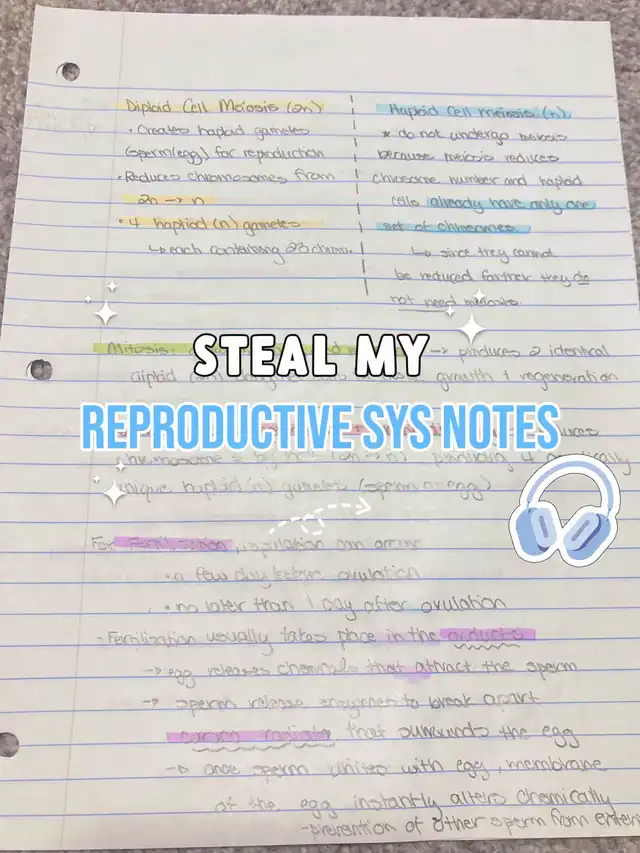 Diploid Cell Meiosis (2n)
• Creates haploid gametes
(sperm/egg) for reproduction
• Reduces chromosomes from
2n → n
• 4 haploid (n) gametes
↳ each containing 23 chrom.
Haploid Cell meiosis (n)
* do not undergo meiosis
because meiosis reduces
number and haploid
cells already have only one
set of
↳ since they cannot
be reduced farther they do
not need meiosis.
STEAL MY
Mitosis: → produces 2 identical
diploid (2n) growth + regeneration
REPRODUCTIVE SYS NOTES
unique haploid (n) gametes (sperm or egg)
For Fertilization, copulation can occur
• a few days before ovulation
• no later than 1 day after ovulation
- Fertilization usually takes place in the oviducts
→ egg releases chemicals that attract the sperm
→ sperm release enzymes to break apart
corona radiata that surrounds the egg
→ once sperm unites with egg, membrane
of the egg instantly alters chemically
- prevention of other sperm from